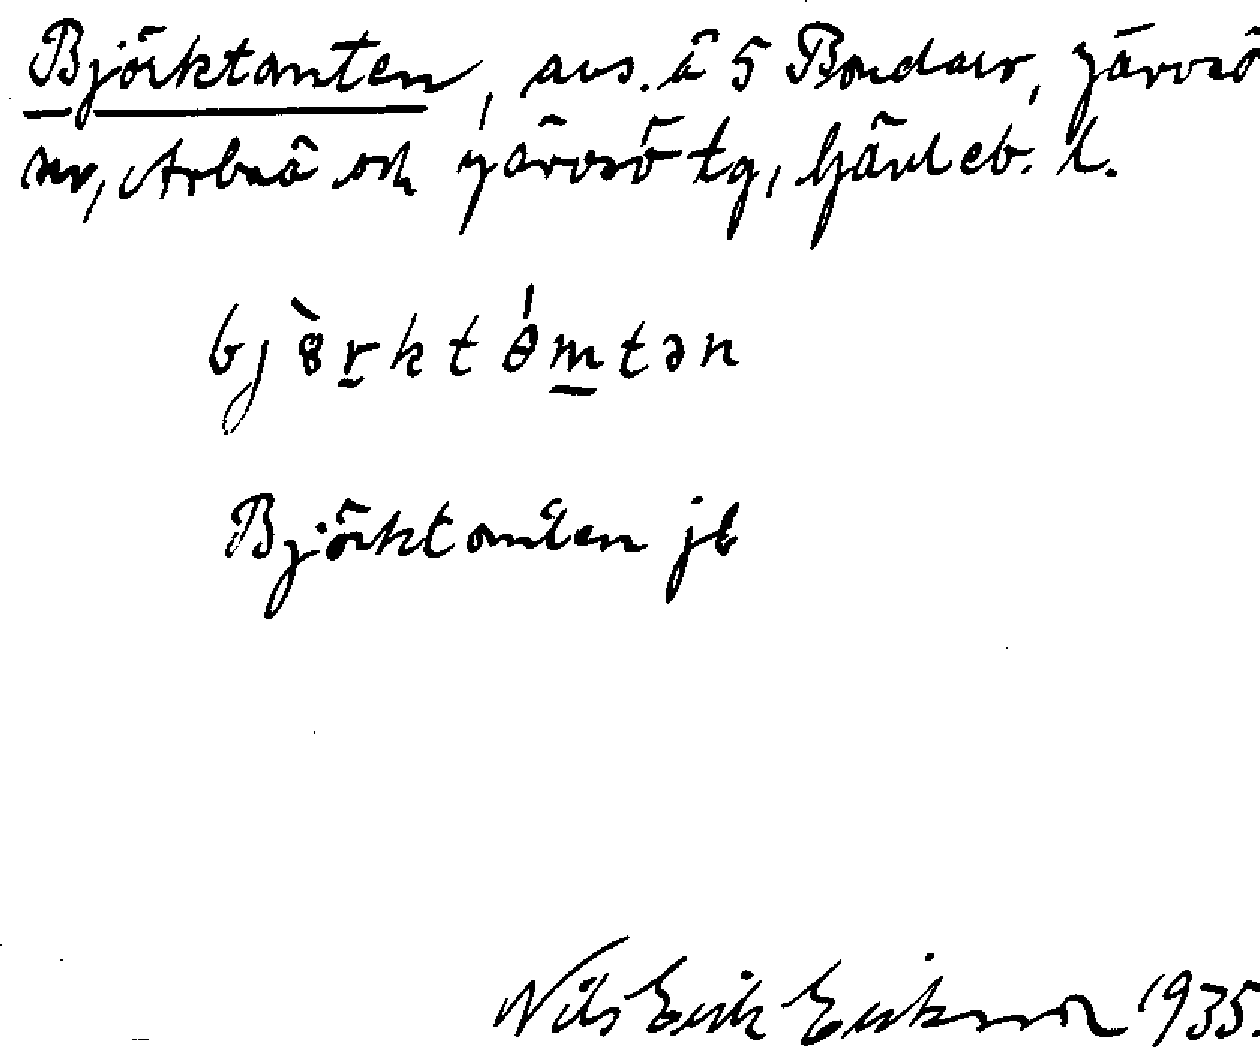 Björktomten, avs. å 5 Bondarv, Järvsö
sn, Arbrå och Järvsö tg, Gävleb. l.
bjȣ̀r̲ktɵ́m̲tən
Björktomten jb
Nils Erik Erikson 1935.